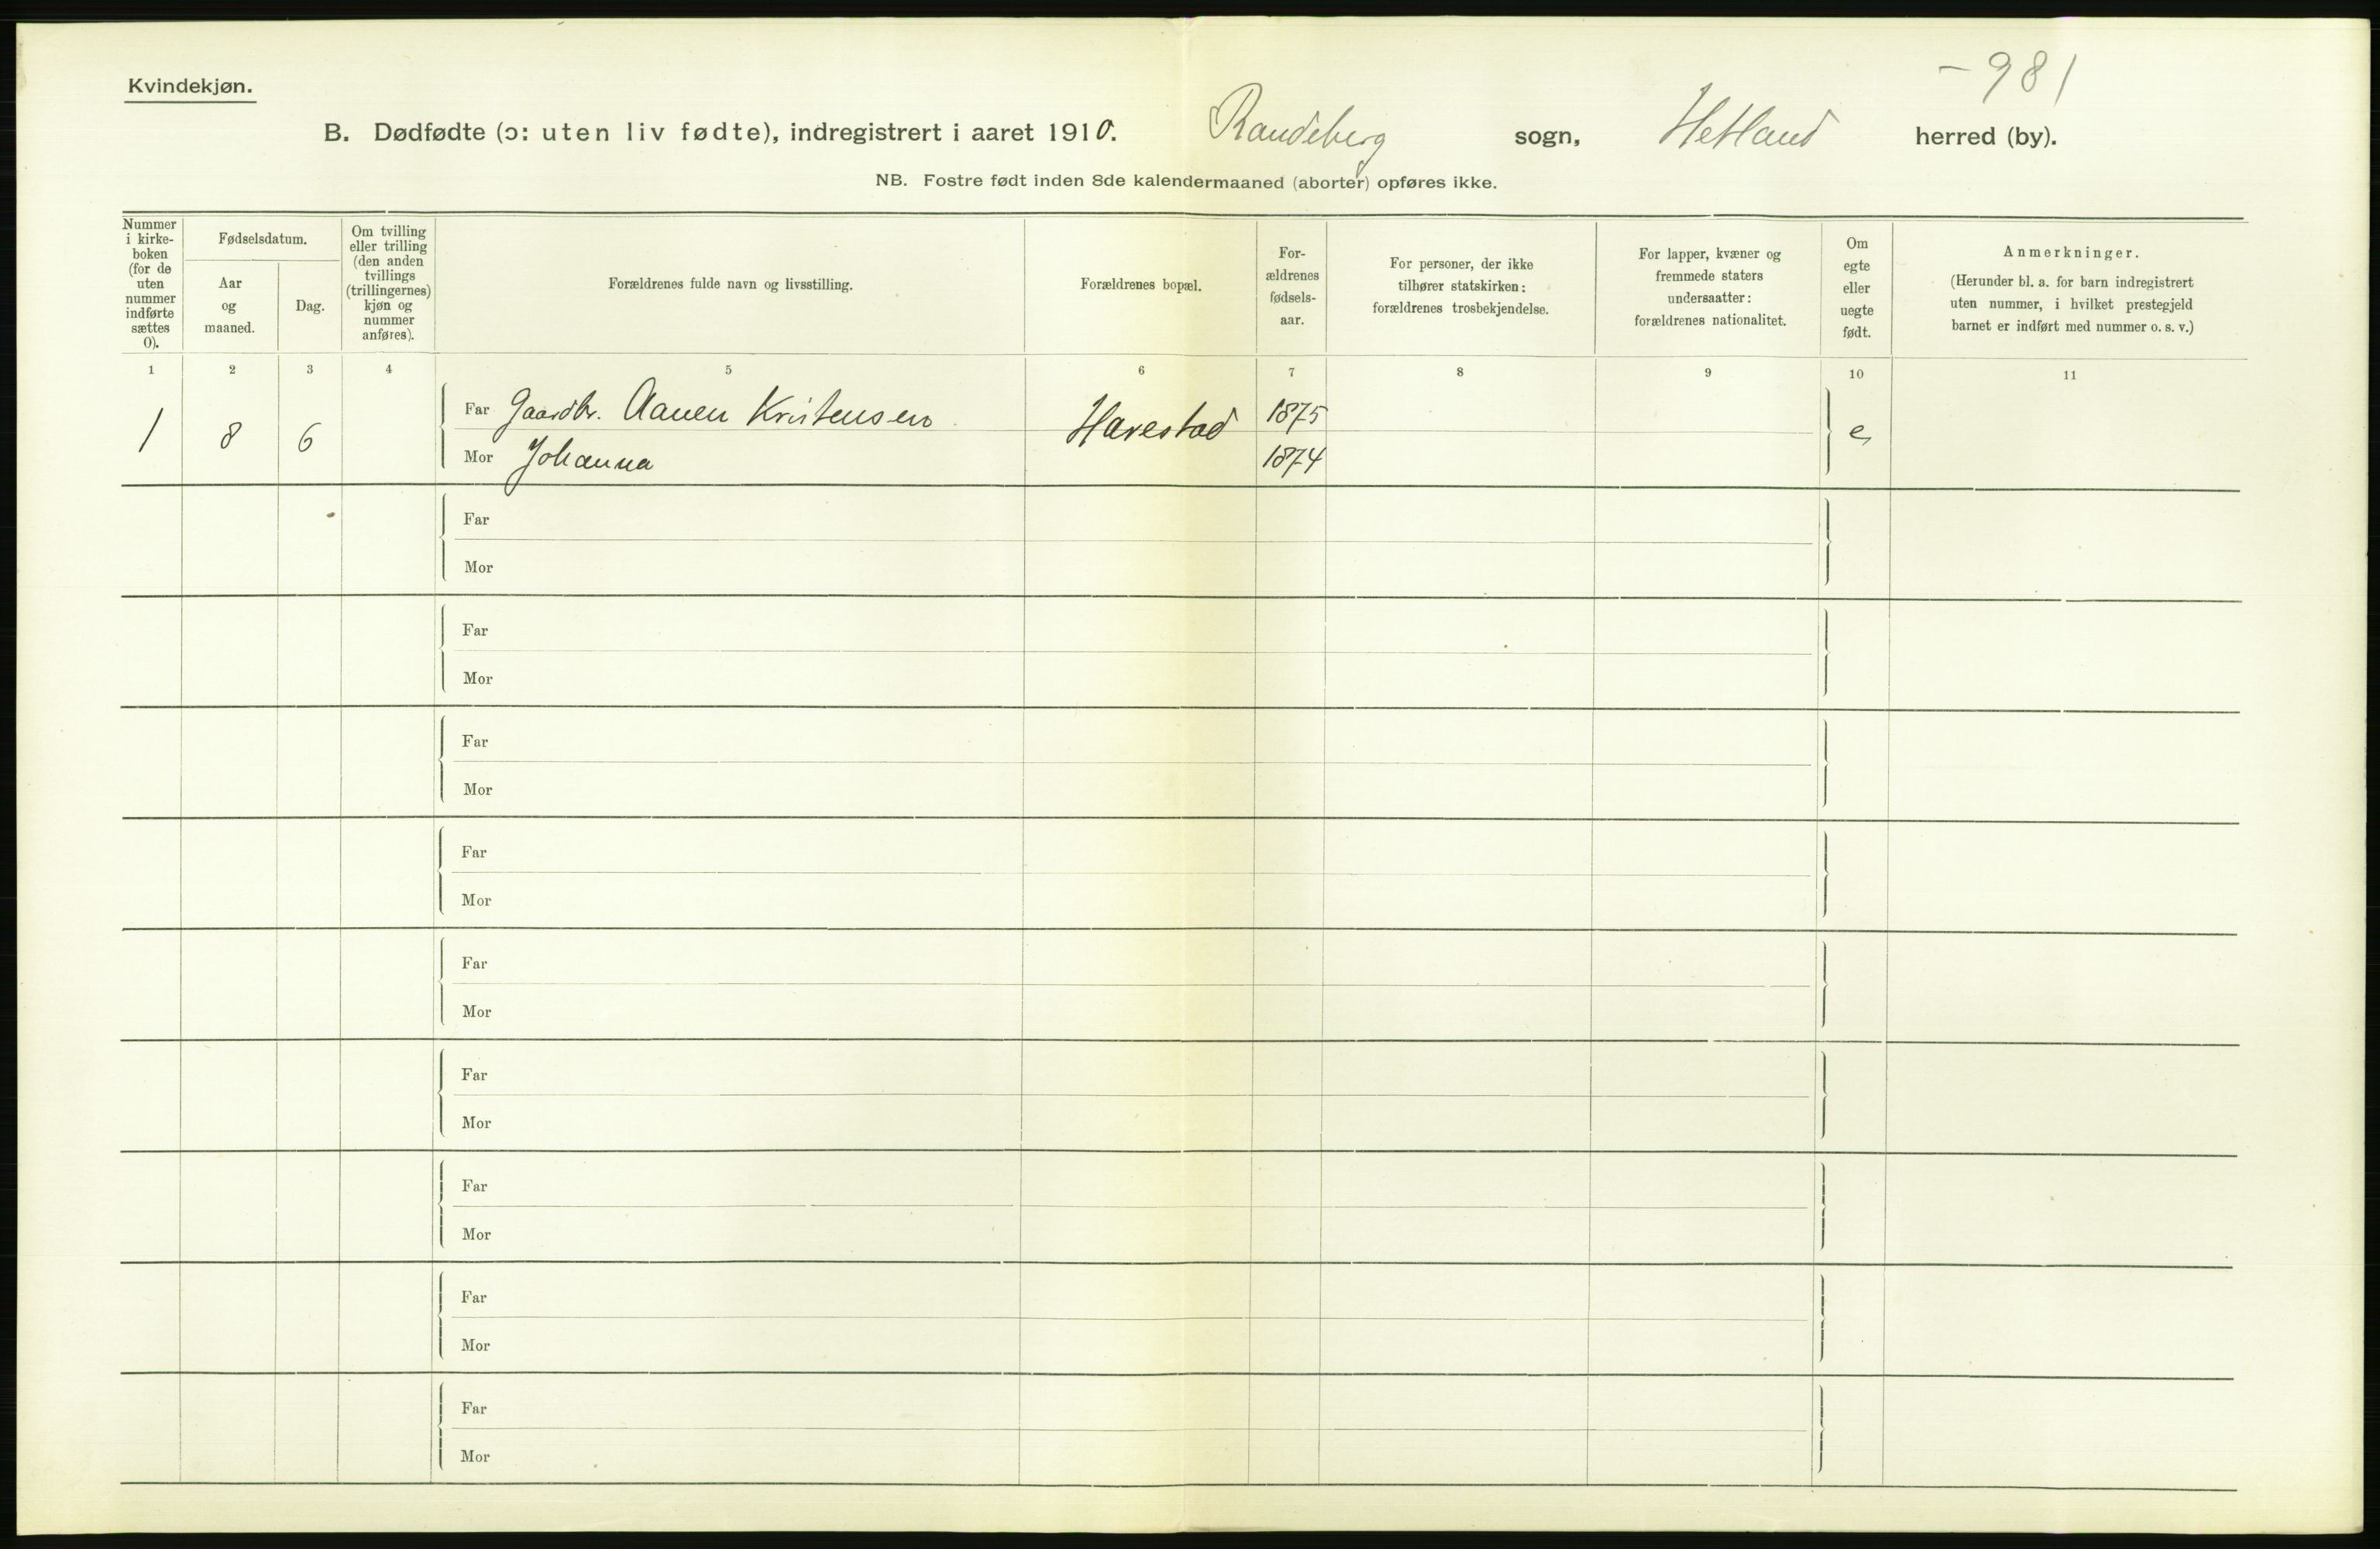 - 981
Kvindekjøn.
B. Dødfødte (ɔ: uten liv fødte), indregistrert i aaret 1910. Randeberg sogn, Hetland herred (by).
NB. Fostre født inden 8de kalendermaaned (aborter) opføres ikke.
Nummer
i kirke-
boken
(for de
uten
nummer
indførte
sættes
0).
Fødselsdatum.
Aar
og
maaned.
Dag.
Om tvilling
eller trilling
(den anden
tvillings
(trillingernes)
kjøn og
nummer
anføres).
Forældrenes fulde navn og livsstilling.
Forældrenes bopæl.
For-
ældrenes
fødsels-
aar.
For personer, der ikke
tilhører statskirken:
forældrenes trosbekjendelse.
For lapper, kvæner og
fremmede staters
undersaatter:
forældrenes nationalitet.
Om
egte
eller
uegte
født.
Anmerkninger.
(Herunder bl. a. for barn indregistrert
uten nummer, i hvilket prestegjeld
barnet er indført med nummer o. s. v.)
1 2 3 4 5 6 7 8 9 10 11
Far Gaardbr. Aanen Kristensen 1875
1 8 6 Harestad e
Mor Johanna 1874
Far
Mor
Far
Mor
Far
Mor
Far
Mor
Far
Mor
Far
Mor
Far
Mor
Far
Mor
Far
Mor